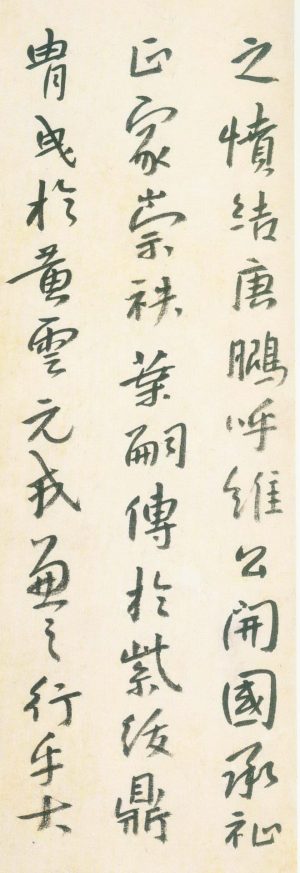 之憤結唐鵬呼維公開國承祉
正家崇袟葉嗣傳於紫綬鼎
胄曳於黃雲元戎之行乎大